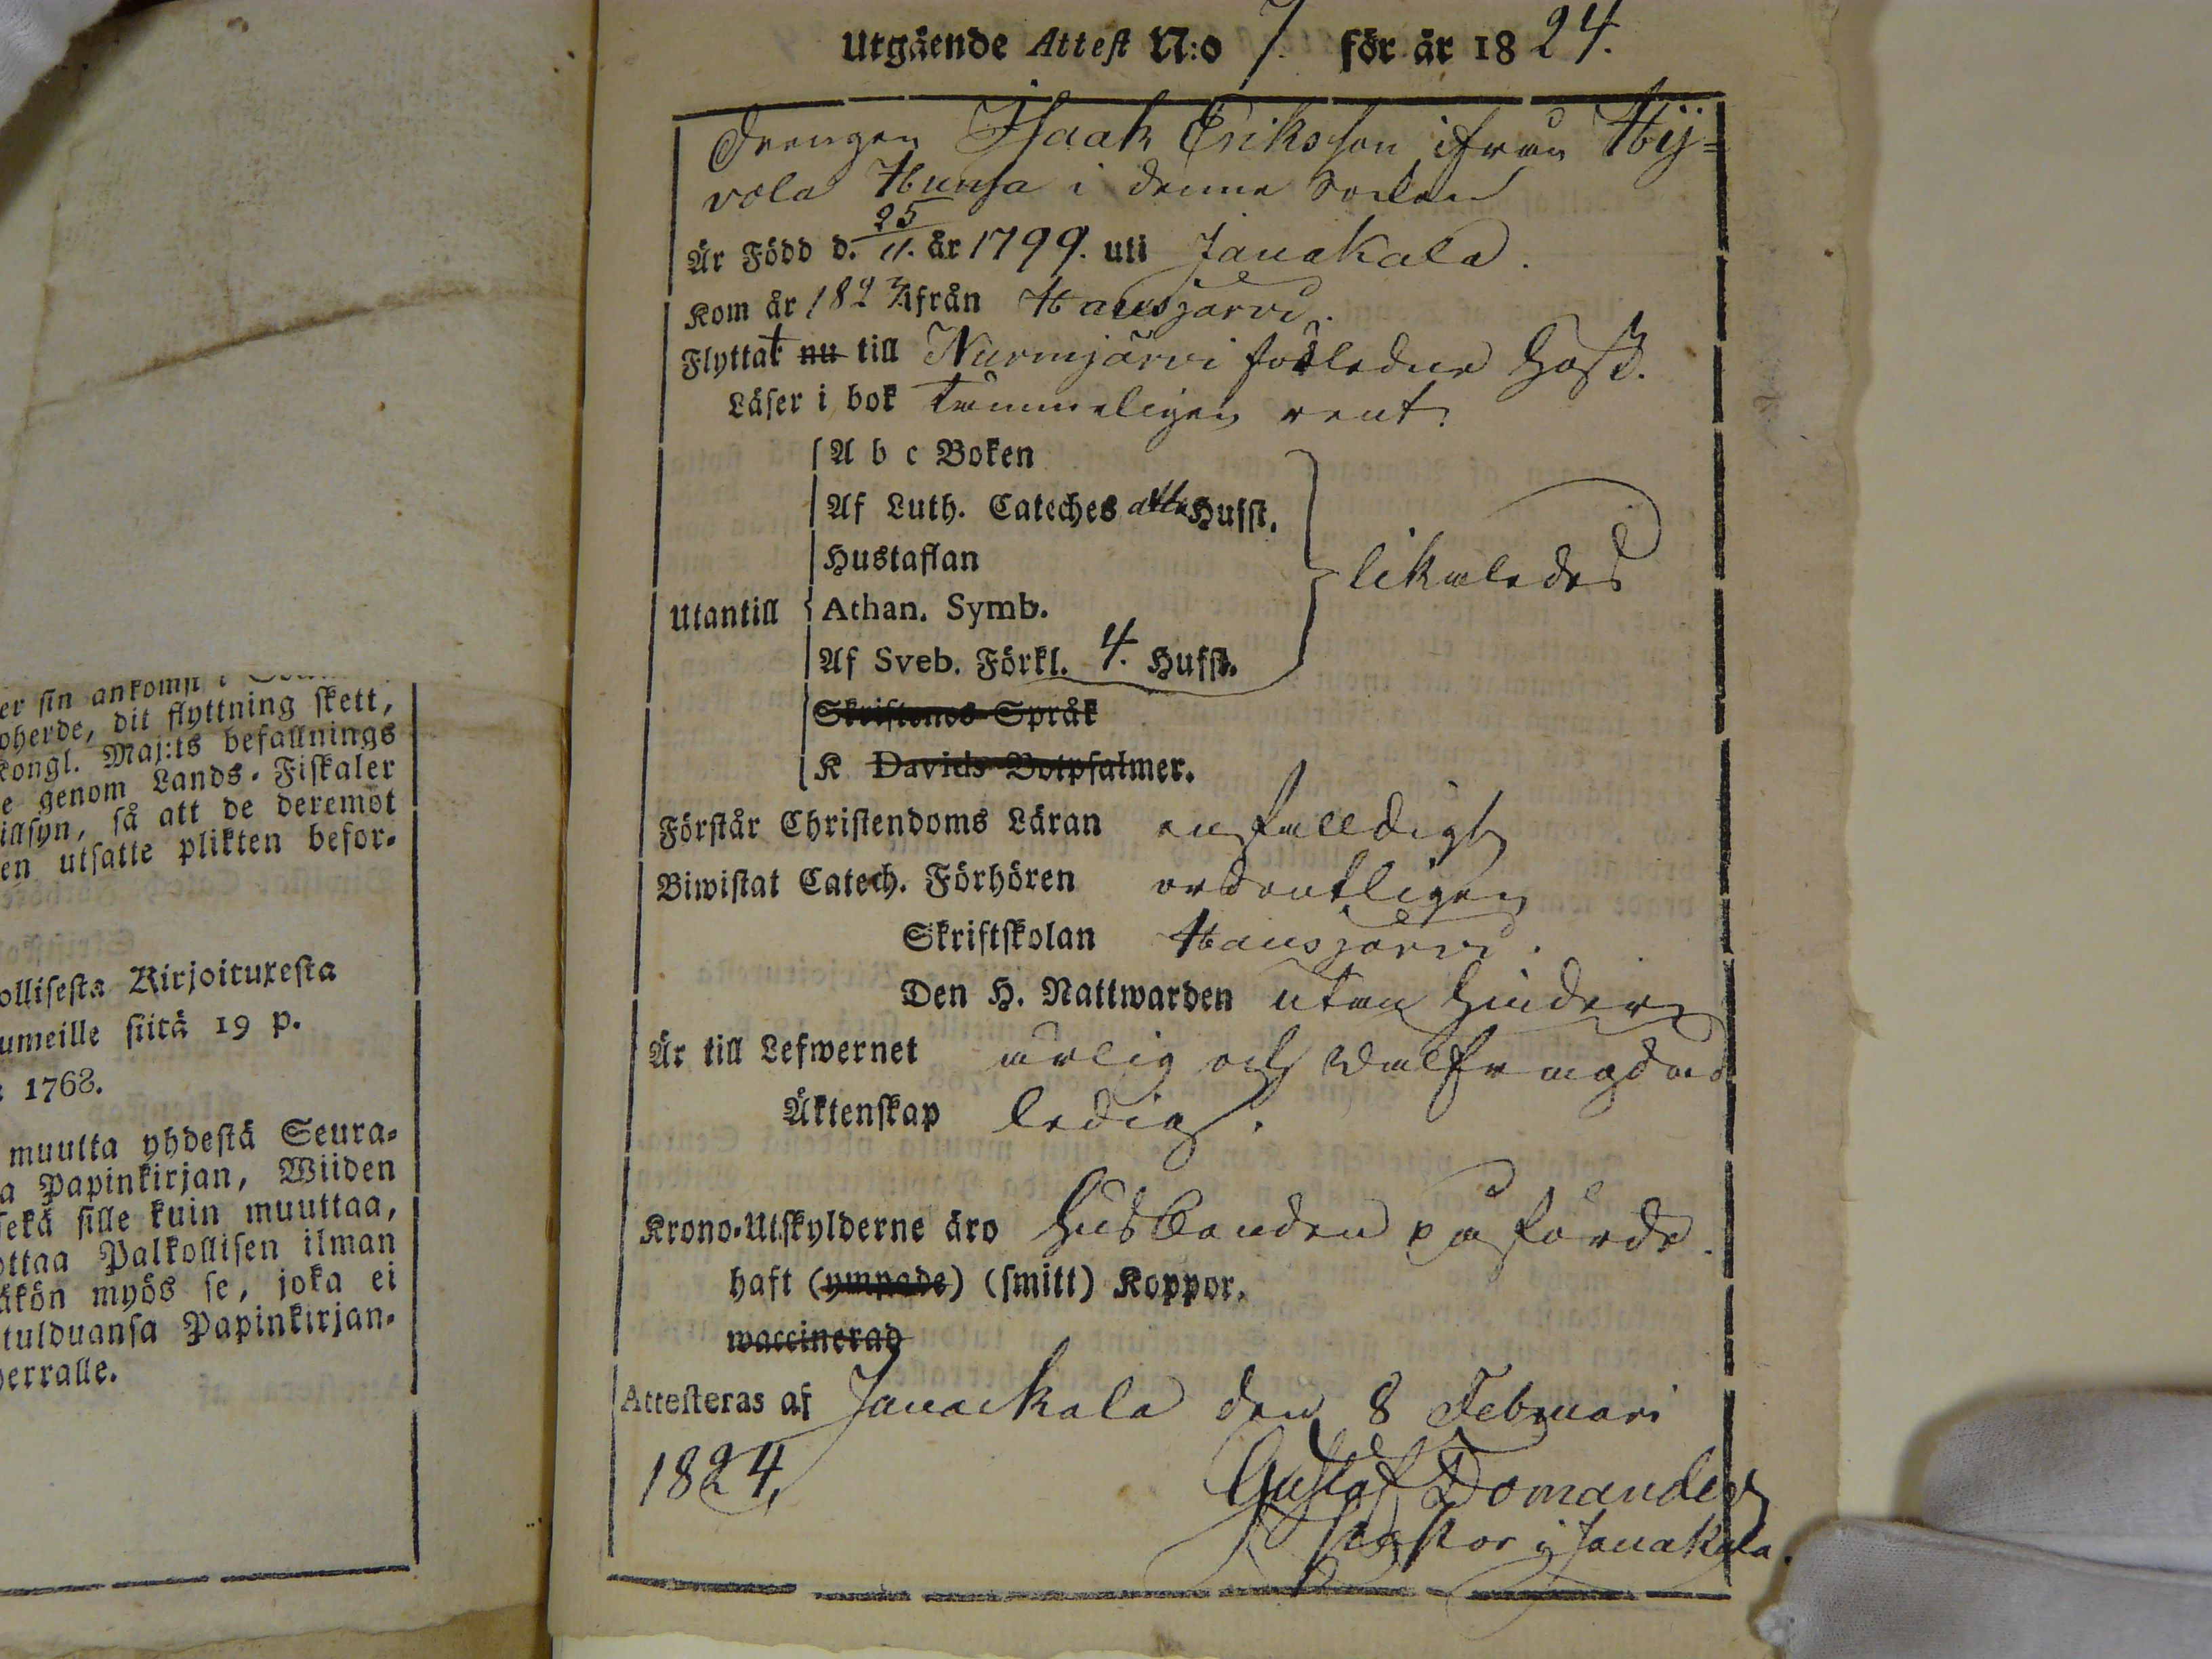 er sin ankomst i
oherde, dit flyttning skett,
Kongl. Maj:ts befallnings
e genom Lands-Fiskaler
illsyn, så att de deremot
en utsatte plikten befor-
ollisesta Kirjoituxesta
umeille siitä 19 p.
: 1768.
muutta yhdestä Seura-
a Papinkirjan, Wiiden
sekä sille kuin muuttaa,
ottaa Palkollisen ilman
äkön myös se, joka ei
tulduansa Papinkirjan-
herralle.
Utgående Attest N:o 7. för år 1824.
Drengen Isaak Eriksson ifrån Hy-
vola Hunsa i denna Socken
Är Född d. 25/11. år 1799. uti Janakala.
Kom år 1823 ifrån Hausjärvi.
Flyttat nu till Nurmijärvi förledne Höst.
Läser i bok tämmeligen rent.
A b c Boken
Af Luth. Cateches alla Hufst.
Hustaflan
likaledes
Utantill Athan. Symb.
Af Sveb. Förkl. 4. Hufst.
Skriftenes Språk
K Davids Botpsalmer.
Förstår Christendoms Läran enfalldigt
Biwistat Catech. Förhören ordentligen
Skriftskolan Hausjärvi.
Den H. Nattwarden utan hinder
Är till Lefwernet ärlig och välfrägdad
Äktenskap ledig.
Krono-Utskylderne äro Husbonden påförde.
haft (ympade) (smitt) Koppor.
waccinerad
Attesteras af Janakkala den 8 Februari
1824.
Gustaf Domander
Pastor i Janakala.